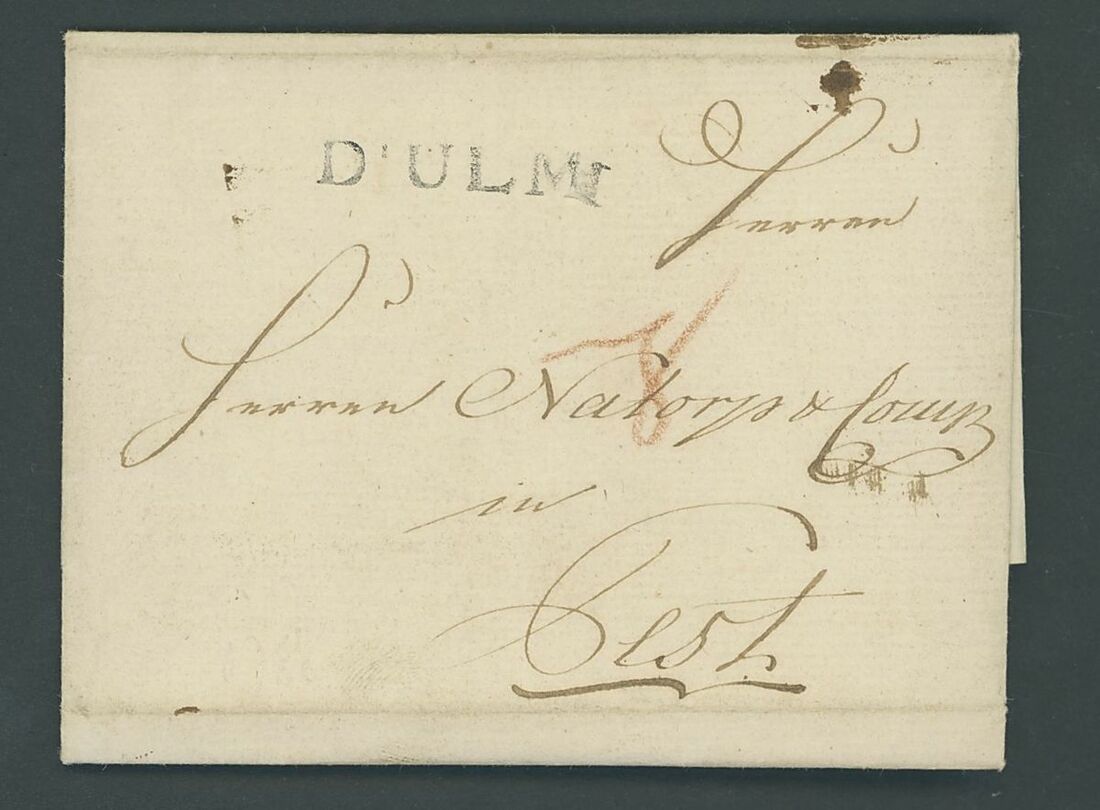 D'ULM
Herren
Herren Natorp & Comp
in
Pest